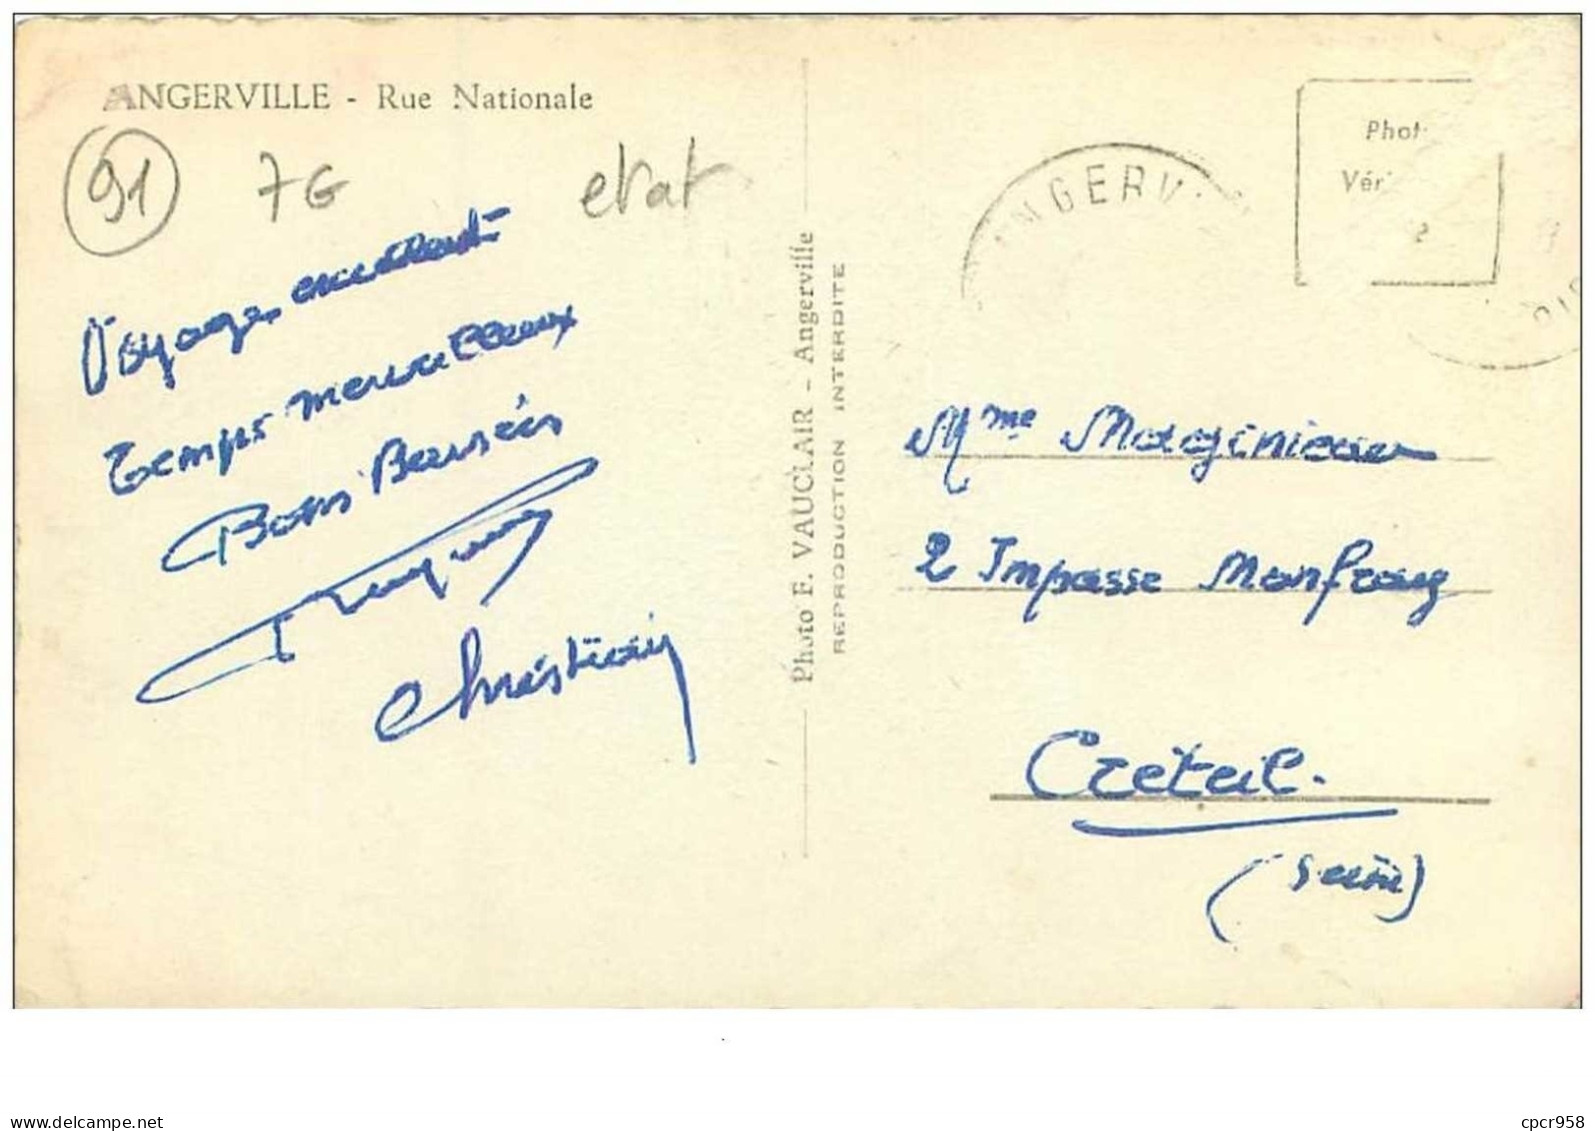 ANGERVILLE - Rue Nationale
91
7G
etat
Voyage excellent
temps merveilleux
Bons Baisers
Christian
Photo F. VAUCLAIR - Angerville
REPRODUCTION INTERDITE
ANGERV
Phot
Vér
e
Mme
2 Impasse Monfray
Créteil.
(Seine)
www.delcampe.net
cpcr958